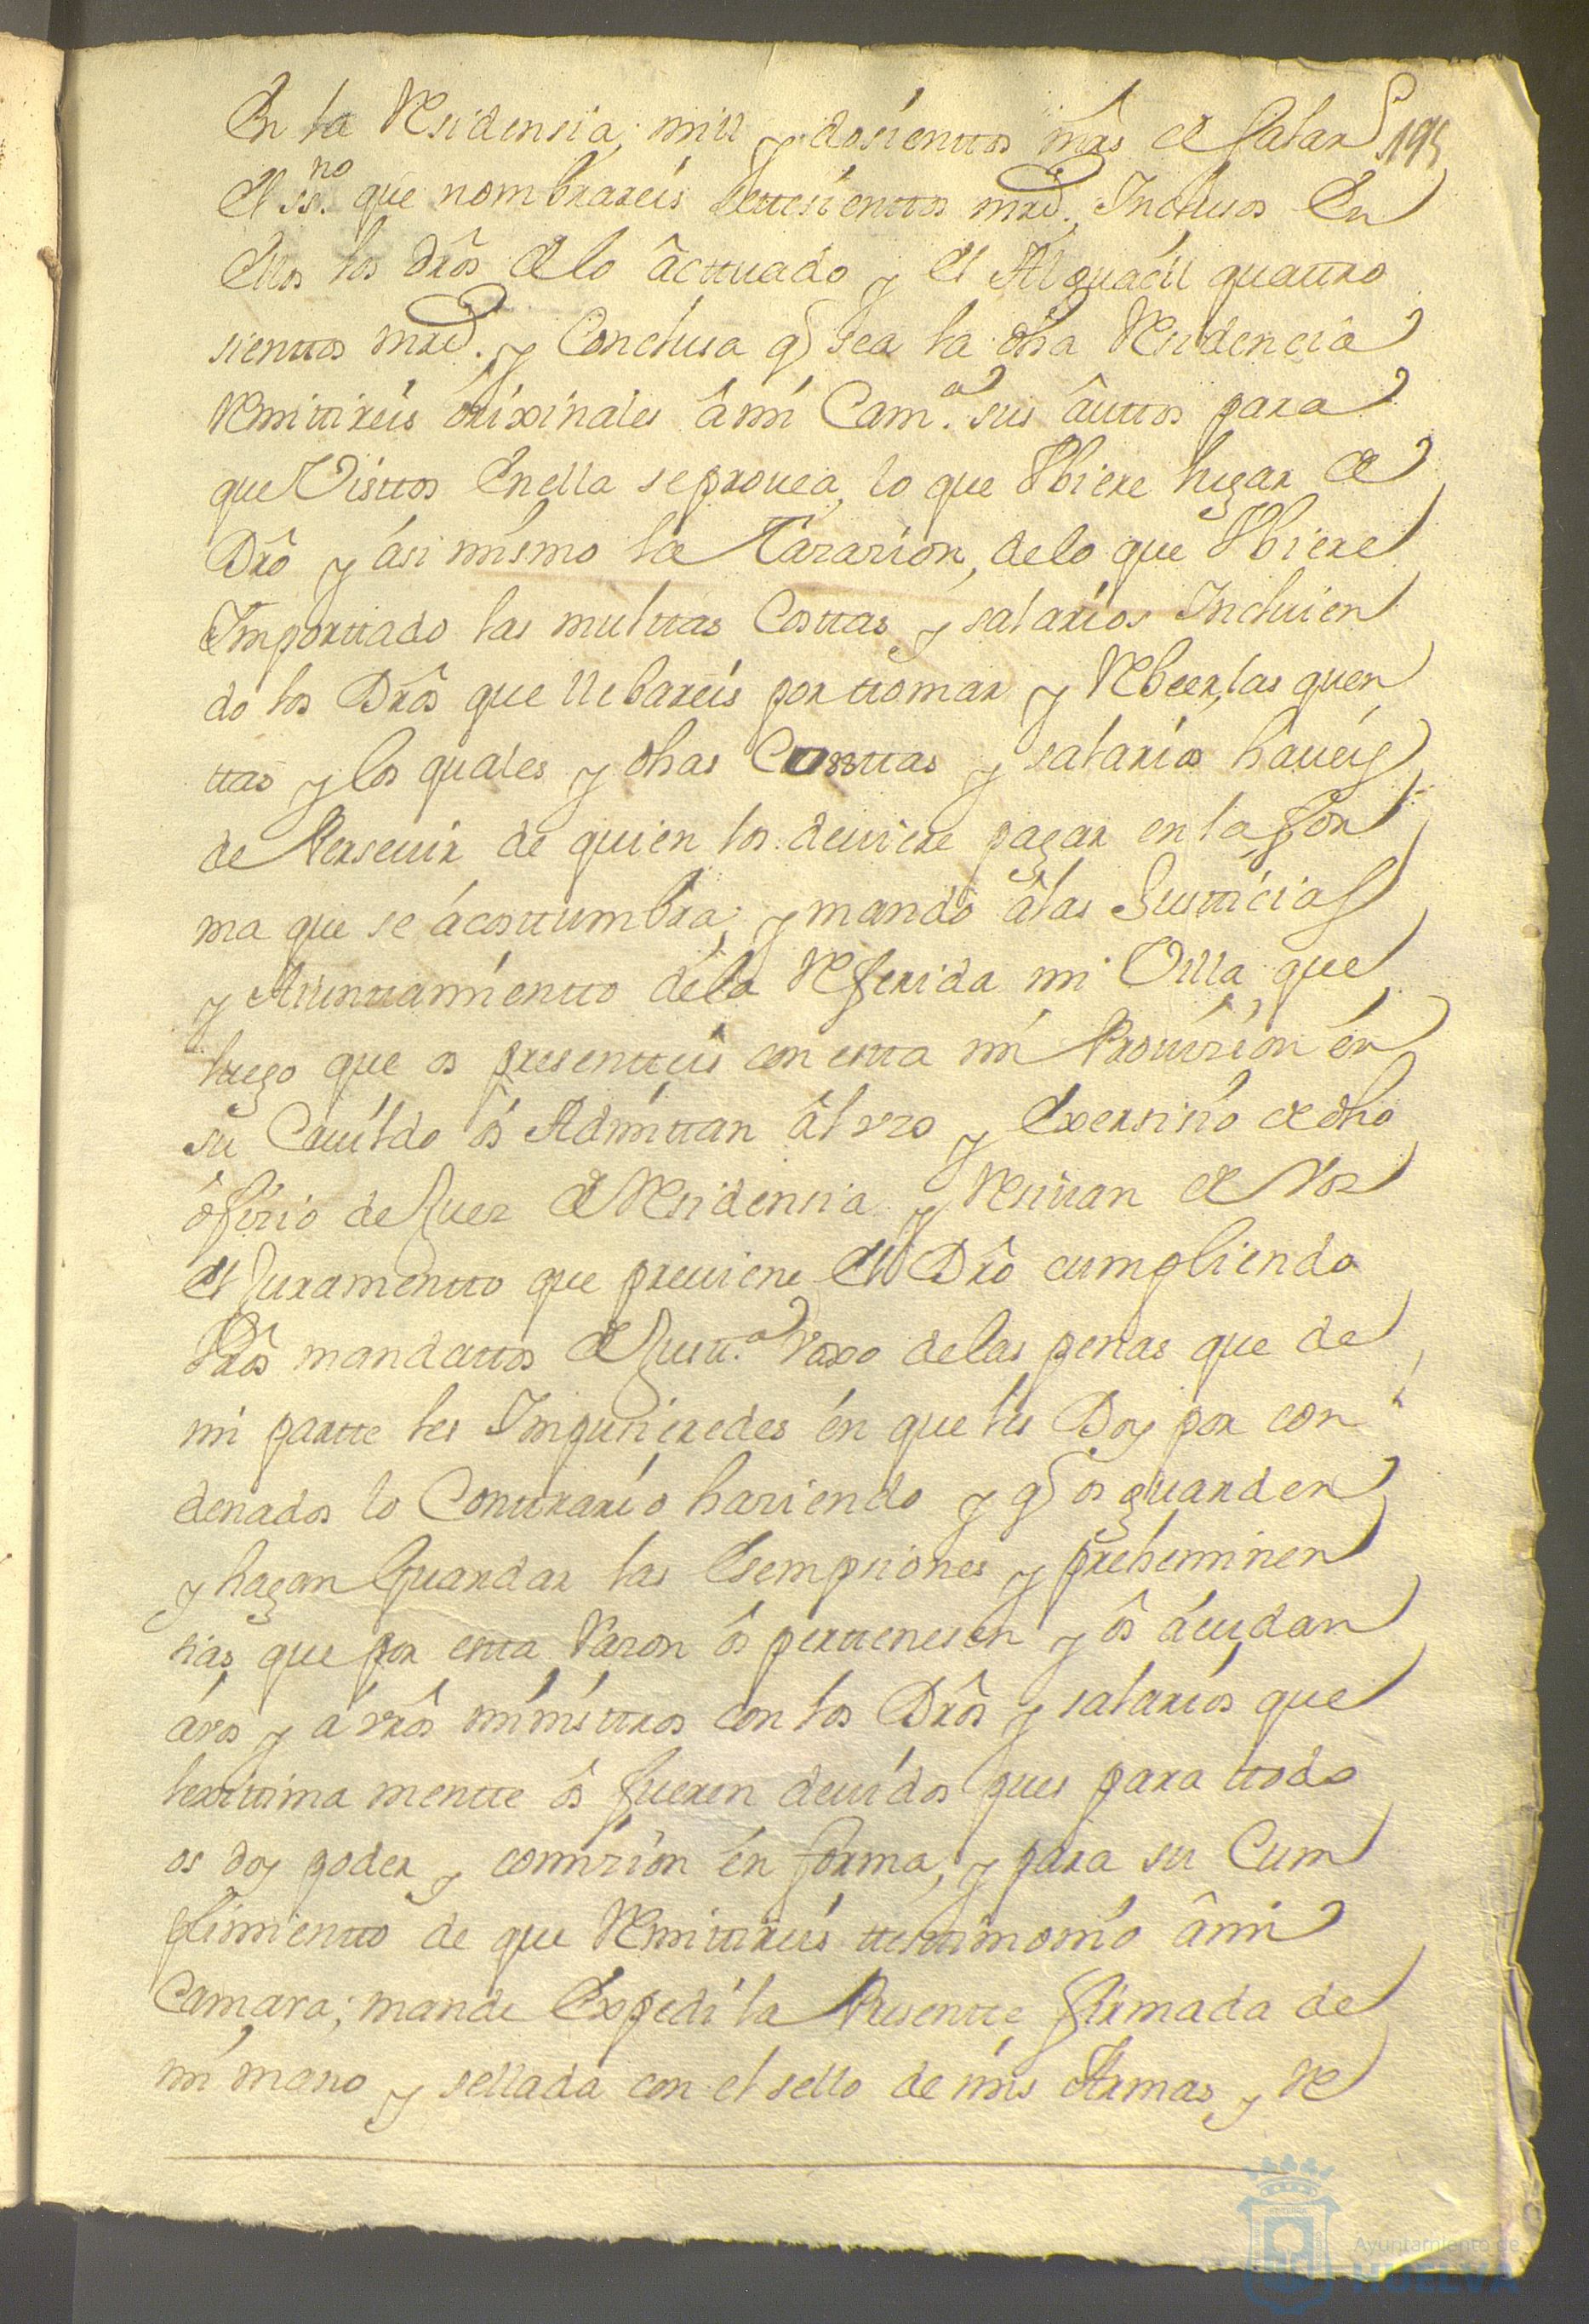 En la Residensia, mill y dosienttos mrs de salar
195
El ssno. que nombrareis settesienttos mrd. Inclusos En
Ellos los dros de lo acttuado y el Alguacil quattro
sienttos mrd. y Conclusa q sea la dha Residencia
Remittireis orixinales a mi Cama. sus auttos para
que Visttos En ella se prouea, lo que Vbiere lugar de
Dro y asi mismo la Tazazion, de lo que Vbiere
Importtado las multtas Costtas y salarios Incluien
do los Dros que llebareis por ttomar y Rbeer, las quen
ttas y los quales y dhas Cossttas y salarios haueis
de Perseuir de quien los deuiere pagar en la for
ma que se acosttumbra; y mando a las Justticias
y Aiunttamientto de la Referida mi Villa que
luego que os presentteis con estta mi Prouizion en
su Cauildo os Admittan al vzo y Exersisio de dho
ofizio de Juez de Residensia y Resiuan de Vos
el Juramentto que preuiene el Dro cumpliendo
Vros mandattos de Justta. Vaxo de las penas que de
mi partte les Impusieredes en que les Doy por con
denados lo Conttrario haziendo y q os guarden
y hagan Guardar las Esempsiones y preheminen
sias que por estta Razon os perttenesen y os acudan
a vos y a vros ministtros con los Dros y salarios que
lexittima mentte os fueren deuidos pues para ttodo
os doy poder y comizion en forma, y para su Cum
plimientto de que Remittireis ttesttimonio a mi
Camara; mande Expedi la Presentte firmada de
mi mano y sellada con el sello de mis Armas y Re
Ayuntamiento de
HUELVA